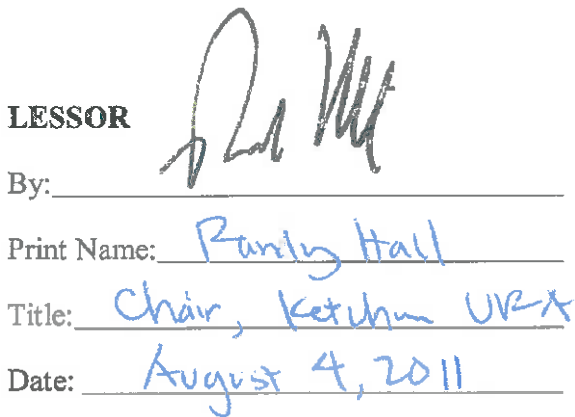 LESSOR
By:
Print Name: Randy Hall
Title: Chair, Ketchum URA
Date: August 4, 2011